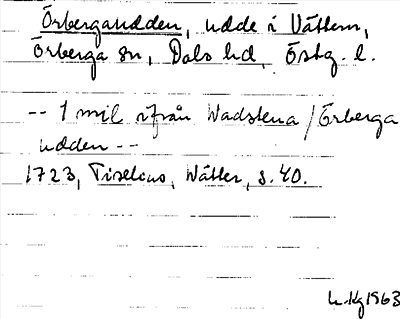 Örbergaudden, udde i Vättern,
Örberga sn, Dals hd, Östg. l.
-- 1 mil ifrån Wadstena / Örberga
udden --
1723, Tiselius, Wätter, s. 40.
L. Kg 1963